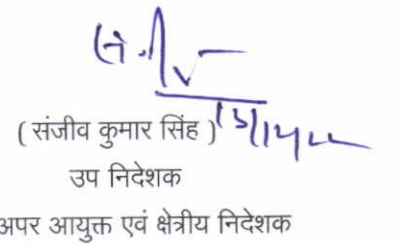 ( संजीव कुमार सिंह )
उप निदेशक
अपर आयुक्त एवं क्षेत्रीय निदेशक